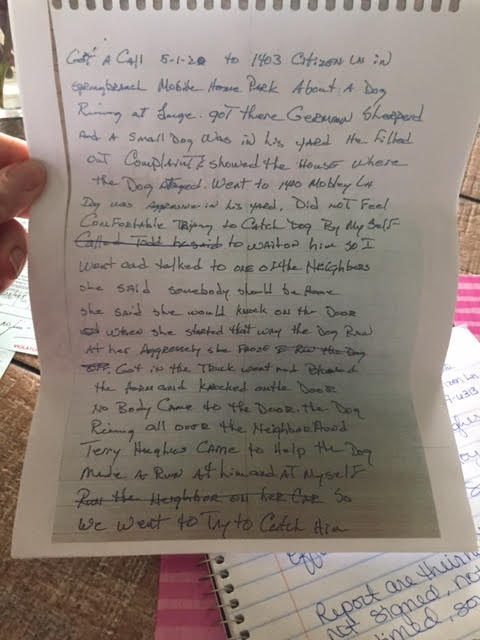 Got A Call 5-1-20 to 1403 Citizen LN in
springbranch Mobile Home Park About A Dog
Runing at Large. got there German Sheperd
And A Small Dog was in his yard He Filled
out Complaint & showed the House where
the Dog stayed. Went to 1410 Mobley LN
Dog was in his yard. Did not Feel
Comfortable Trying to Catch Dog By My self
Called Todd he said to wait on him so I
Went and talked to one of the Neighbors
she said somebody should be home
she said she would knock on the Door
when she started that way the Dog Run
At her Aggressively she Froze & Run the Dog
off. Got in the Truck went and Blowed
the horn and knocked on the Door
No Body Came to the Door. the Dog
Runing all over the Neighborhood
Terry Hughes Came to Help the Dog
Made A Run At him and AT Myself
Run the Neighbor on her Car so
We went to Try to Catch Him
Report are their
not signed, not